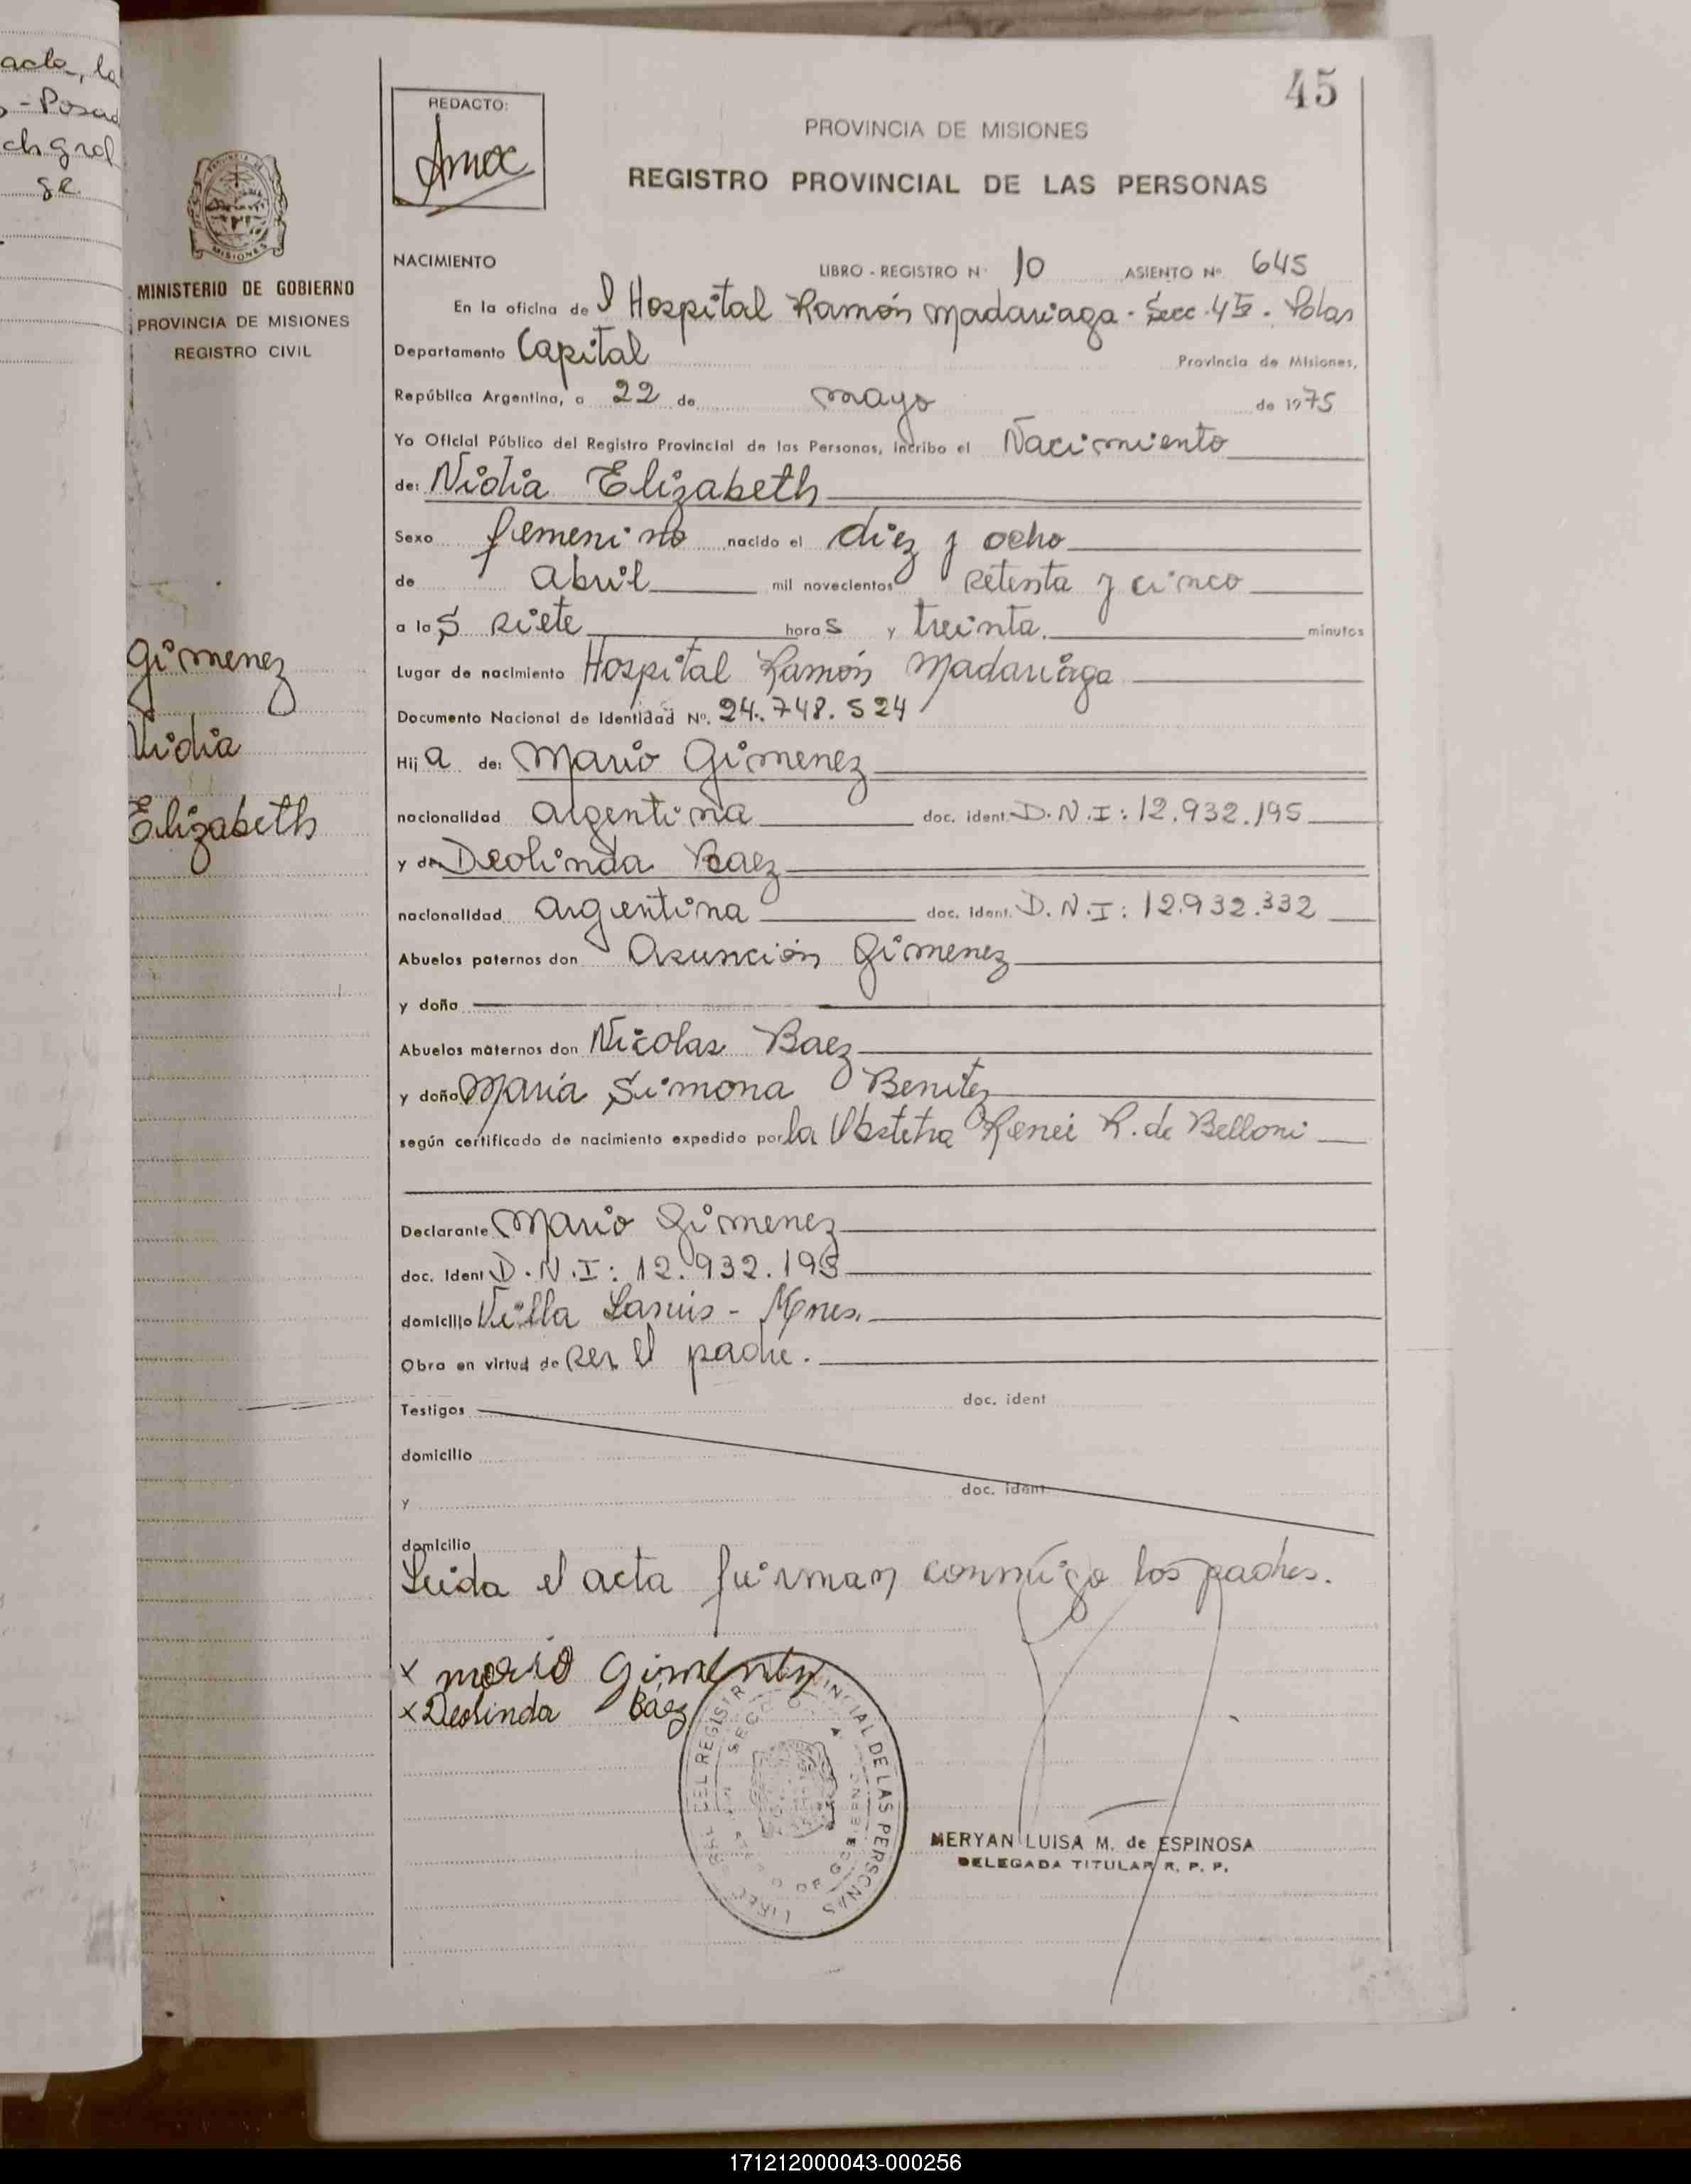 acta, la
- Posad
ch gral
se.
45
REDACTO:
PROVINCIA DE MISIONES
REGISTRO PROVINCIAL DE LAS PERSONAS
MISIONES
MINISTERIO DE GOBIERNO
PROVINCIA DE MISIONES
REGISTRO CIVIL
NACIMIENTO LIBRO - REGISTRO Nº 10 ASIENTO Nº 645
En la oficina de l Hospital Ramón Madariaga - Secc. 4ª - Pdas
Departamento Capital Provincia de Misiones,
República Argentina, a 22 de mayo de 1975
Yo Oficial Público del Registro Provincial de las Personas, incribo el Nacimiento
de: Nidia Elizabeth
Sexo femenino nacido el diez y ocho
de abril mil novecientos setenta y cinco
a las siete horas y treinta. minutos
Gimenez
Lugar de nacimiento Hospital Ramón Madariaga
Documento Nacional de Identidad Nº. 24.748.524
Nidia
Hija de: Mario Gimenez
nacionalidad argentina doc. ident. D.N.I: 12.932.195
Elizabeth
y de Deolinda Baez
nacionalidad argentina doc. ident. D.N.I: 12.932.332
Abuelos paternos don Asunción Gimenez
y doña
Abuelos maternos don Nicolas Baez
y doña María Simona Benitez
según certificado de nacimiento expedido por la Obstetra Reneé R. de Belloni
Declarante Mario Gimenez
doc. Ident D.N.I: 12.932.195
domicilio Villa Lanús - Mnes.
Obra en virtud de ser el padre.
Testigos doc. ident
domicilio
y doc. ident
domicilio
Leida el acta firman conmigo los padres.
x mario Gimenez
x Deolinda Báez
PROVINCIAL DE LAS PERSONAS
MERYAN LUISA M. de ESPINOSA
DELEGADA TITULAR R. P. P.
171212000043-000256